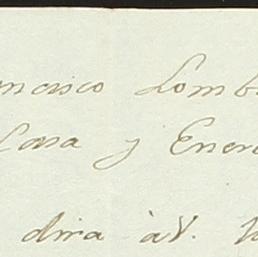 ncisco Lomb
Casa y Ener
dira à V. la